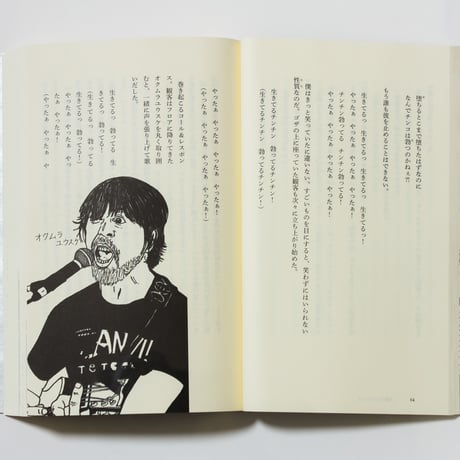 堕ちるとこまで堕ちたはずなのに
なんでチンコは勃つのかねぇ?!
もう誰も彼を止めることはできない。
生きてるっ 勃ってる 生きてるっ!
チンチン 勃ってる チンチン 勃ってる!
やったぁ やったぁ やったぁ やったぁ!
(生きてるチンチン 勃ってるチンチン!)
僕はきっと笑っていたに違いない。すごいものを目にすると、笑わずにはいられない
性質なのだ。ゴザの上に座っていた観客も次々に立ち上がり始めた。
生きてるチンチン 勃ってるチンチン!
(生きてるチンチン 勃ってるチンチン!)
14
やったぁ やったぁ やったぁ やったぁ!
(やったぁ やったぁ やったぁ やったぁ!)
巻き起こるコール&レスポン
ス。観客はフロアに降りてきた
オクムラユウスケを丸く取り囲
むと、一緒に声を張り上げて歌
いだした。
生きてるっ 勃ってる 生
きてるっ 勃ってる
(生きてるっ 勃ってる
生きてるっ 勃ってる)
やったぁ やったぁ やっ
たぁ やったぁ!
(やったぁ やったぁ や
オクムラ
ユウスケ